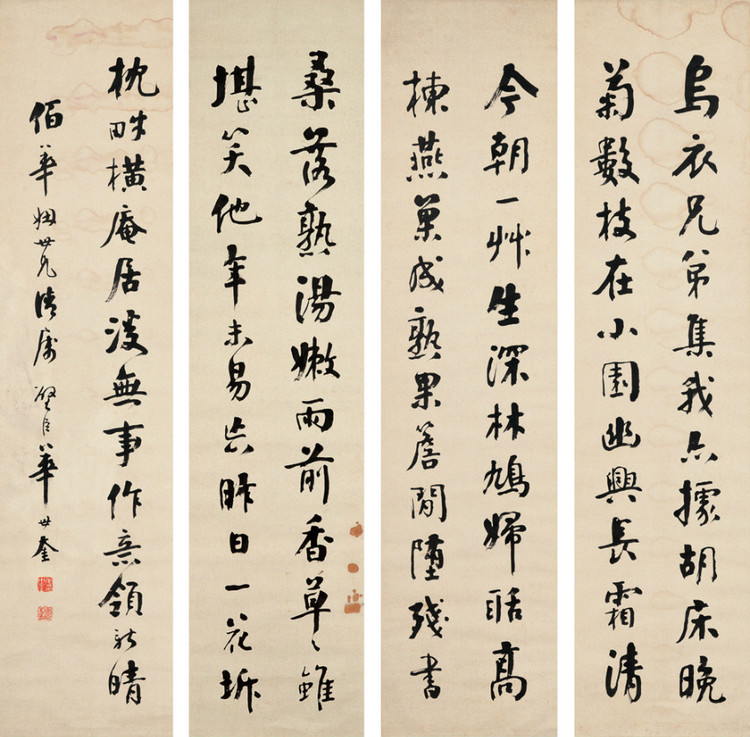 烏衣兄弟集我亦據胡床晚
菊數枝在小園幽興長霜清
今朝一艸生深林鳩婦聒高
棟燕巢成熟果簷間墮殘書
桑落熟湯嫩雨前香草々雖
堪笑他年未易忘昨日一花坼
枕畔橫庵居復無事作意領新晴
佰華姻世兄清屬 璧臣華世奎